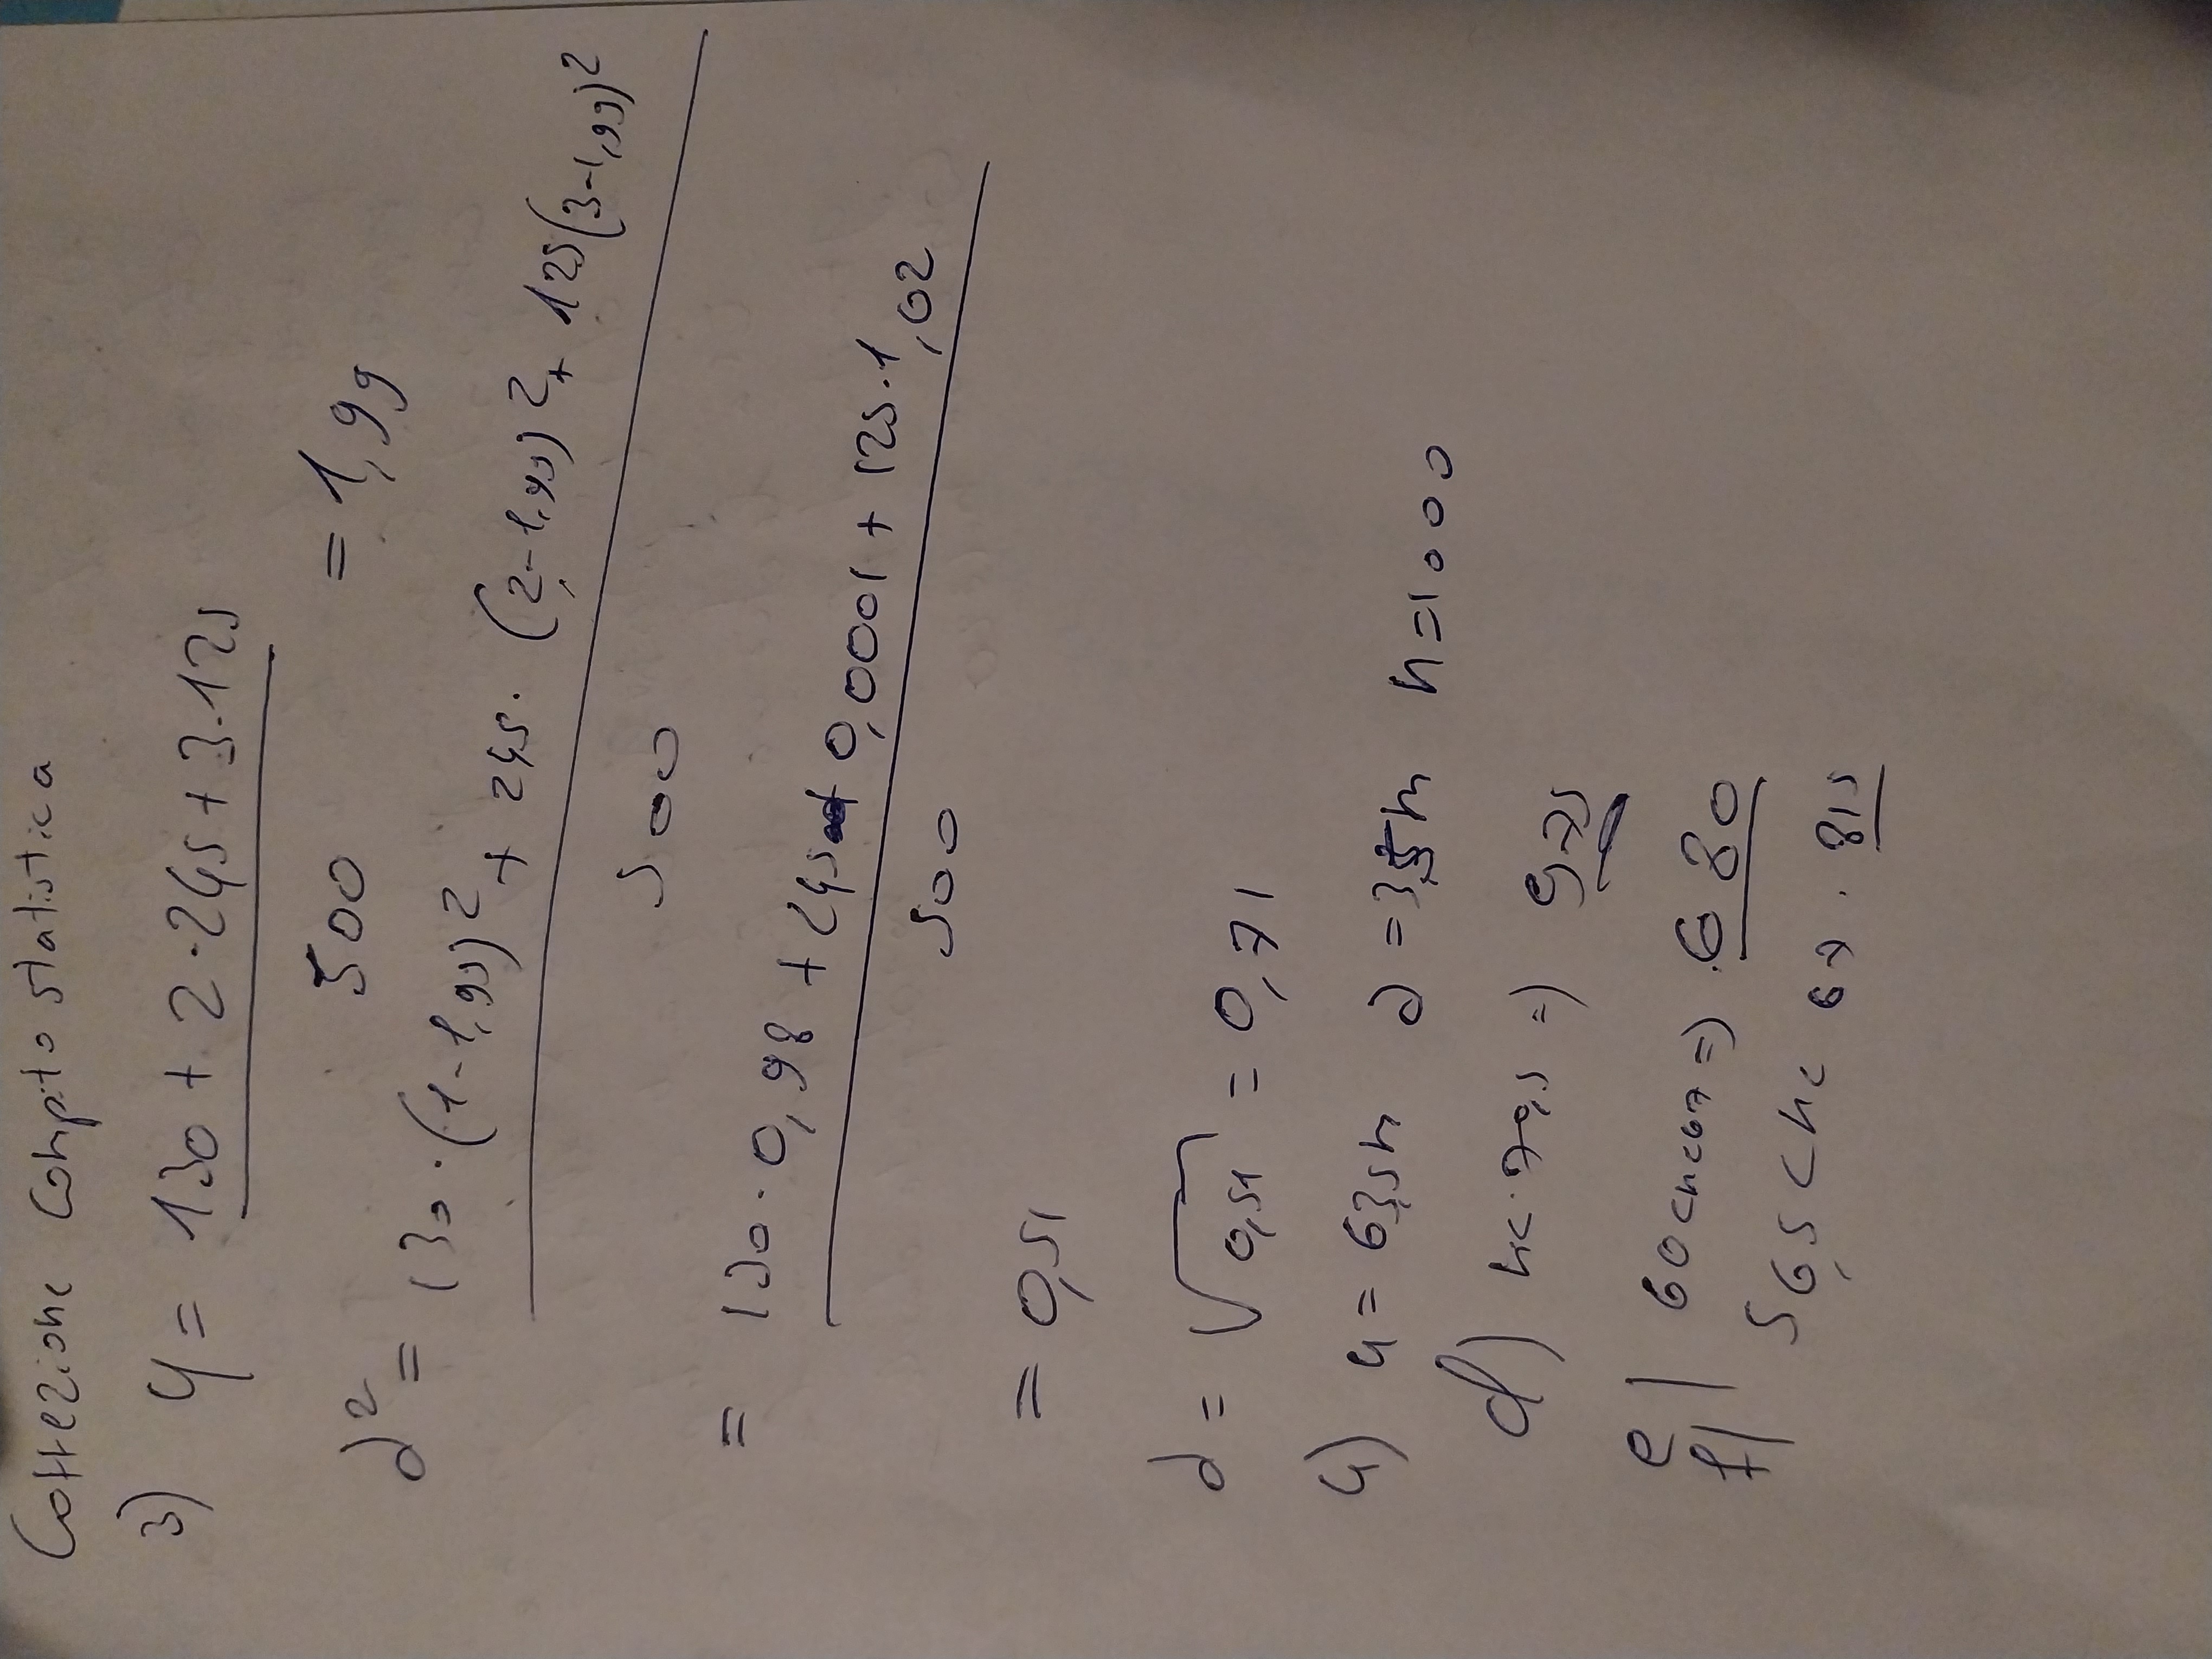 Correzione Compito statistica
3) μ = 130 + 2·245 + 3·125
500 = 1,99
σ² = 130·(1-1,99)² + 245·(2-1,99)² + 125(3-1,99)²
500
= 130·0,98 + 245· 0,0001 + 125·1,02
500
= 0,51
σ = √0,51 = 0,71
4) μ = 63,5m σ = 3,5m n=1000
d) h<70,5 => 975
e) 60<h<67 => 680
f) 56,5<h< 67 . 815